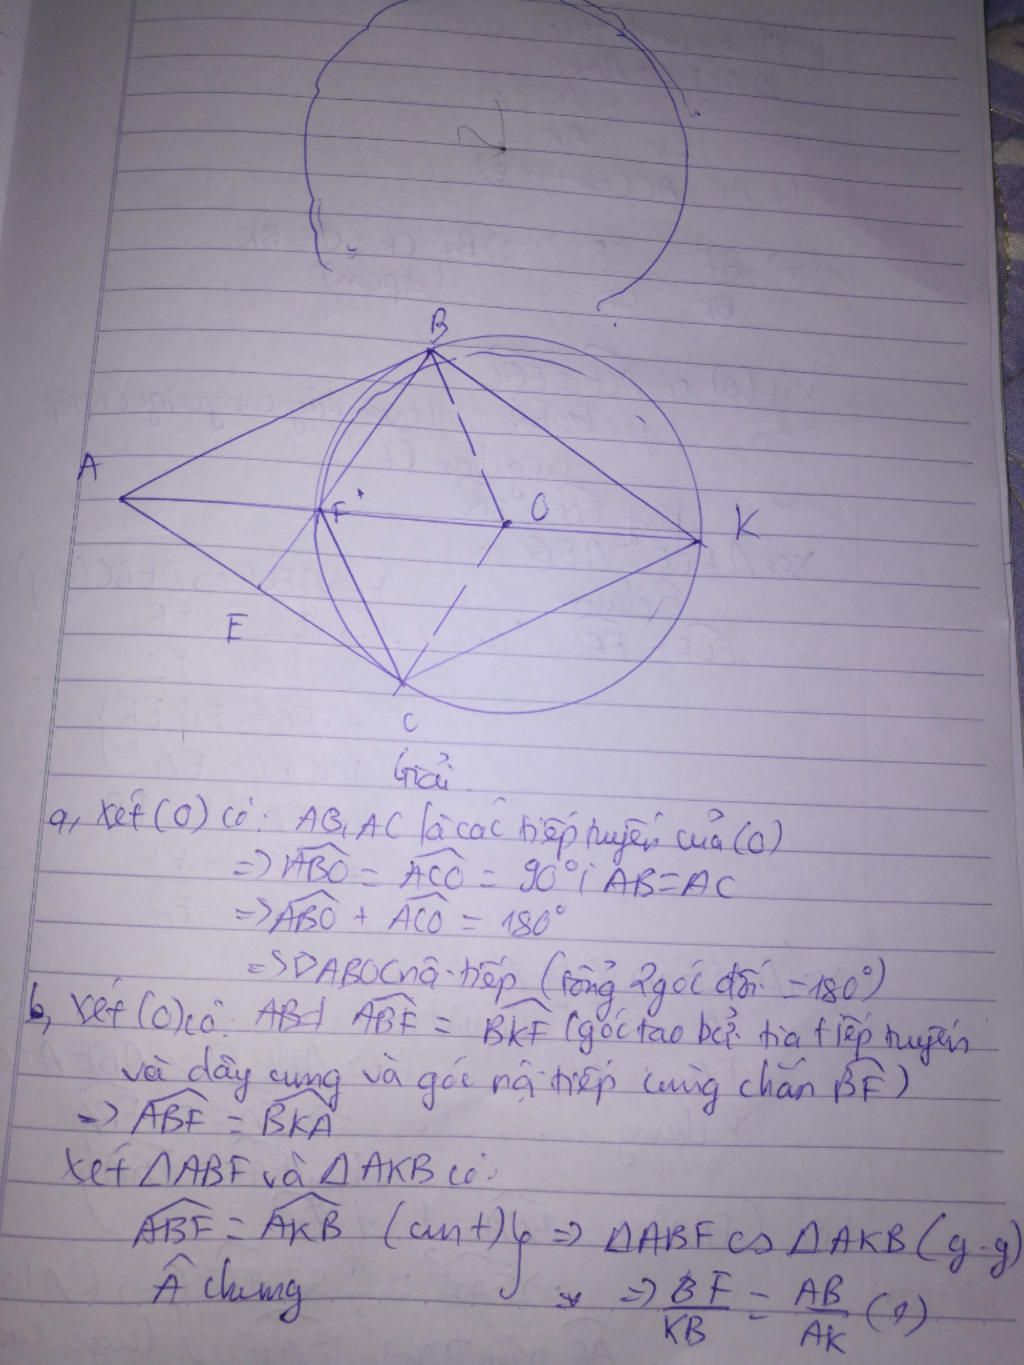 B
A
F
O
K
E
C
Giải
a, Xét (O) có: AB, AC là các tiếp tuyến của (O)
=> ABO = ACO = 90° ; AB=AC
=> ABO + ACO = 180°
=> ABOC nội tiếp (tổng 2 góc đối = 180°)
b, Xét (O) có: ABF = BKF (góc tạo bởi tia tiếp tuyến
và dây cung và góc nội tiếp cùng chắn BF)
=> ABF = BKA
Xét △ABF và △AKB có:
ABF = AKB (cmt) } => △ABF ∽ △AKB (g.g)
A chung
=> BF/KB = AB/AK (1)